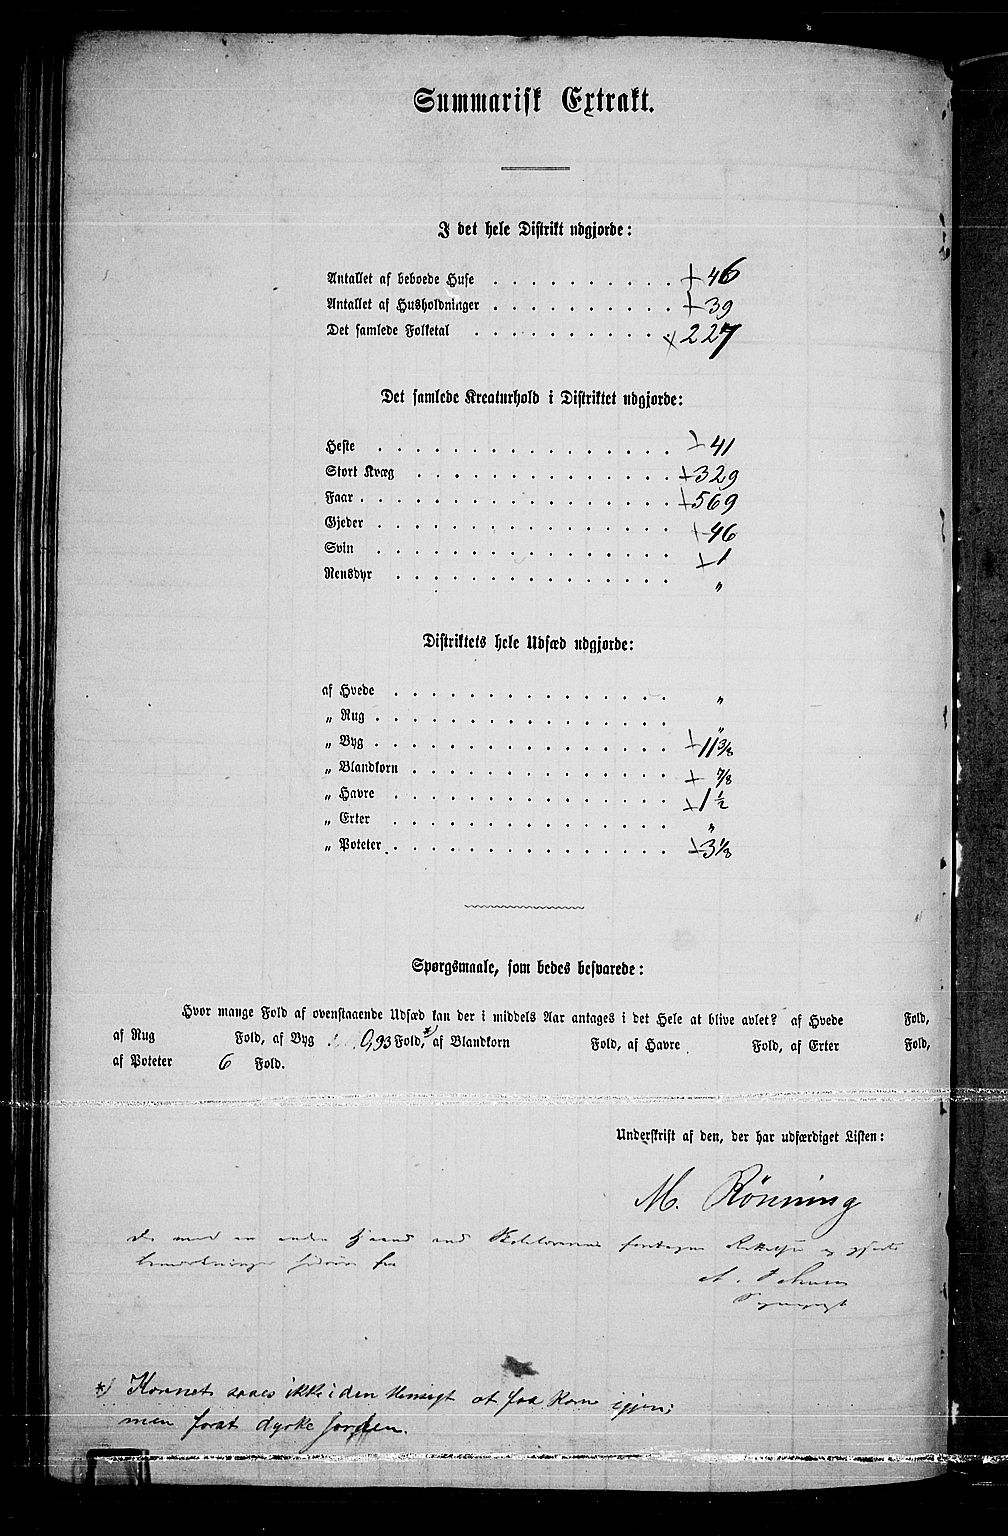 Summarisk Extrakt.
I det hele Distrikt udgjorde:
Antallet af beboede Huse . . . . . . . . . . + 46
Antallet af Husholdninger . . . . . . . . . . + 39
Det samlede Folketal . . . . . . . . . . . × 227
Det samlede Kreaturhold i Distriktet udgjorde:
Heste . . . . . . . . . . . . . . . . + 41
Stort Kvæg . . . . . . . . . . . . . . + 329
Faar . . . . . . . . . . . . . . . . . + 569
Gjeder . . . . . . . . . . . . . . . . + 46
Svin . . . . . . . . . . . . . . . . + 1
Rensdyr . . . . . . . . . . . . . . . „
Distriktets hele Udsæd udgjorde:
af Hvede . . . . . . . . . . . . . . . „
„ Rug . . . . . . . . . . . . . . . . „
„ Byg . . . . . . . . . . . . . . . . + 11 3/8
„ Blandkorn . . . . . . . . . . . . . . + 7/8
„ Havre . . . . . . . . . . . . . . . + 1 1/2
„ Erter . . . . . . . . . . . . . . . „
„ Poteter . . . . . . . . . . . . . . . + 3 1/8
Spørgsmaale, som bedes besvarede:
Hvor mange Fold af ovenstaaende Udsæd kan der i middels Aar antages i det Hele at blive avlet? af Hvede Fold,
af Rug Fold, af Byg 0,93 Fold, *) af Blandkorn Fold, af Havre Fold, af Erter Fold,
af Poteter 6 Fold.
Underskrift af den, der har udfærdiget Listen:
M. Rönning
De med en anden Haand end foretagne og
bemærkninger fra
A.
*) Kornet saaes ikke i den Hensigt at faa Korn igjen;
men forat dyrke Jorden.